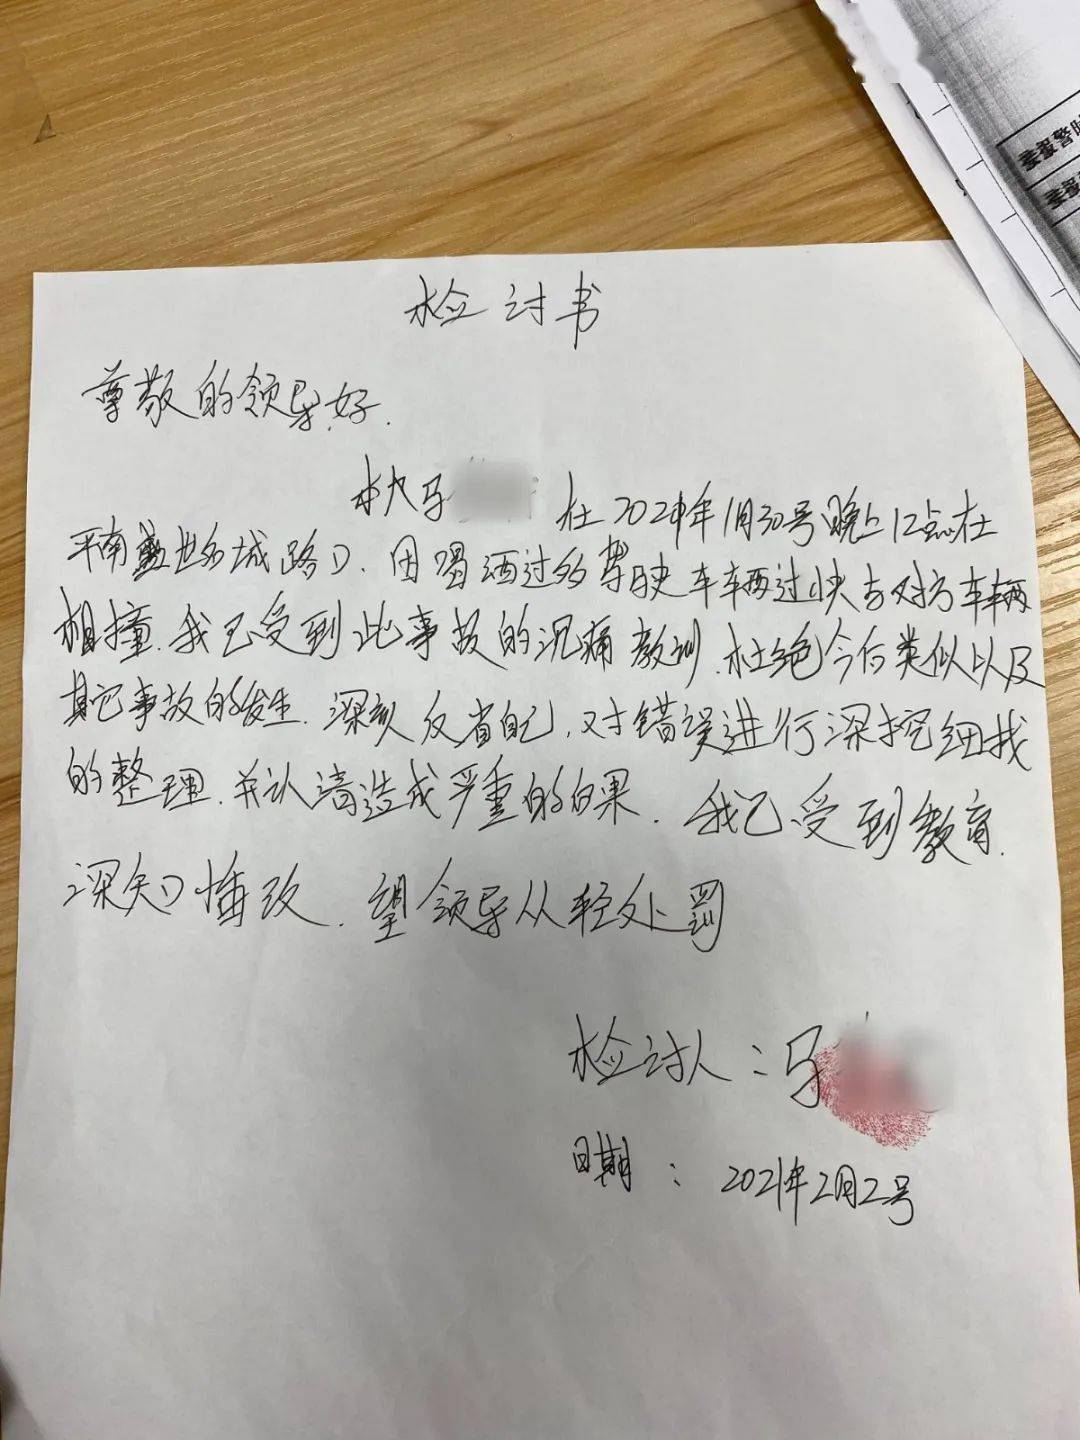 检讨书
尊敬的领导好.
马
在2021年1月30号晚上12点在
平南盛世名城路口.因喝酒过多驾驶车辆过快与对方车辆
相撞.我已受到此事故的沉痛教训.杜绝今后类似以及
其它事故的发生.深刻反省自己,对错误进行深挖细找
的整理.并认清造成严重的后果.我已受到教育.
深知悔改.望领导从轻处罚
检讨人:马
日期:2021年2月2号
要报警时
要报